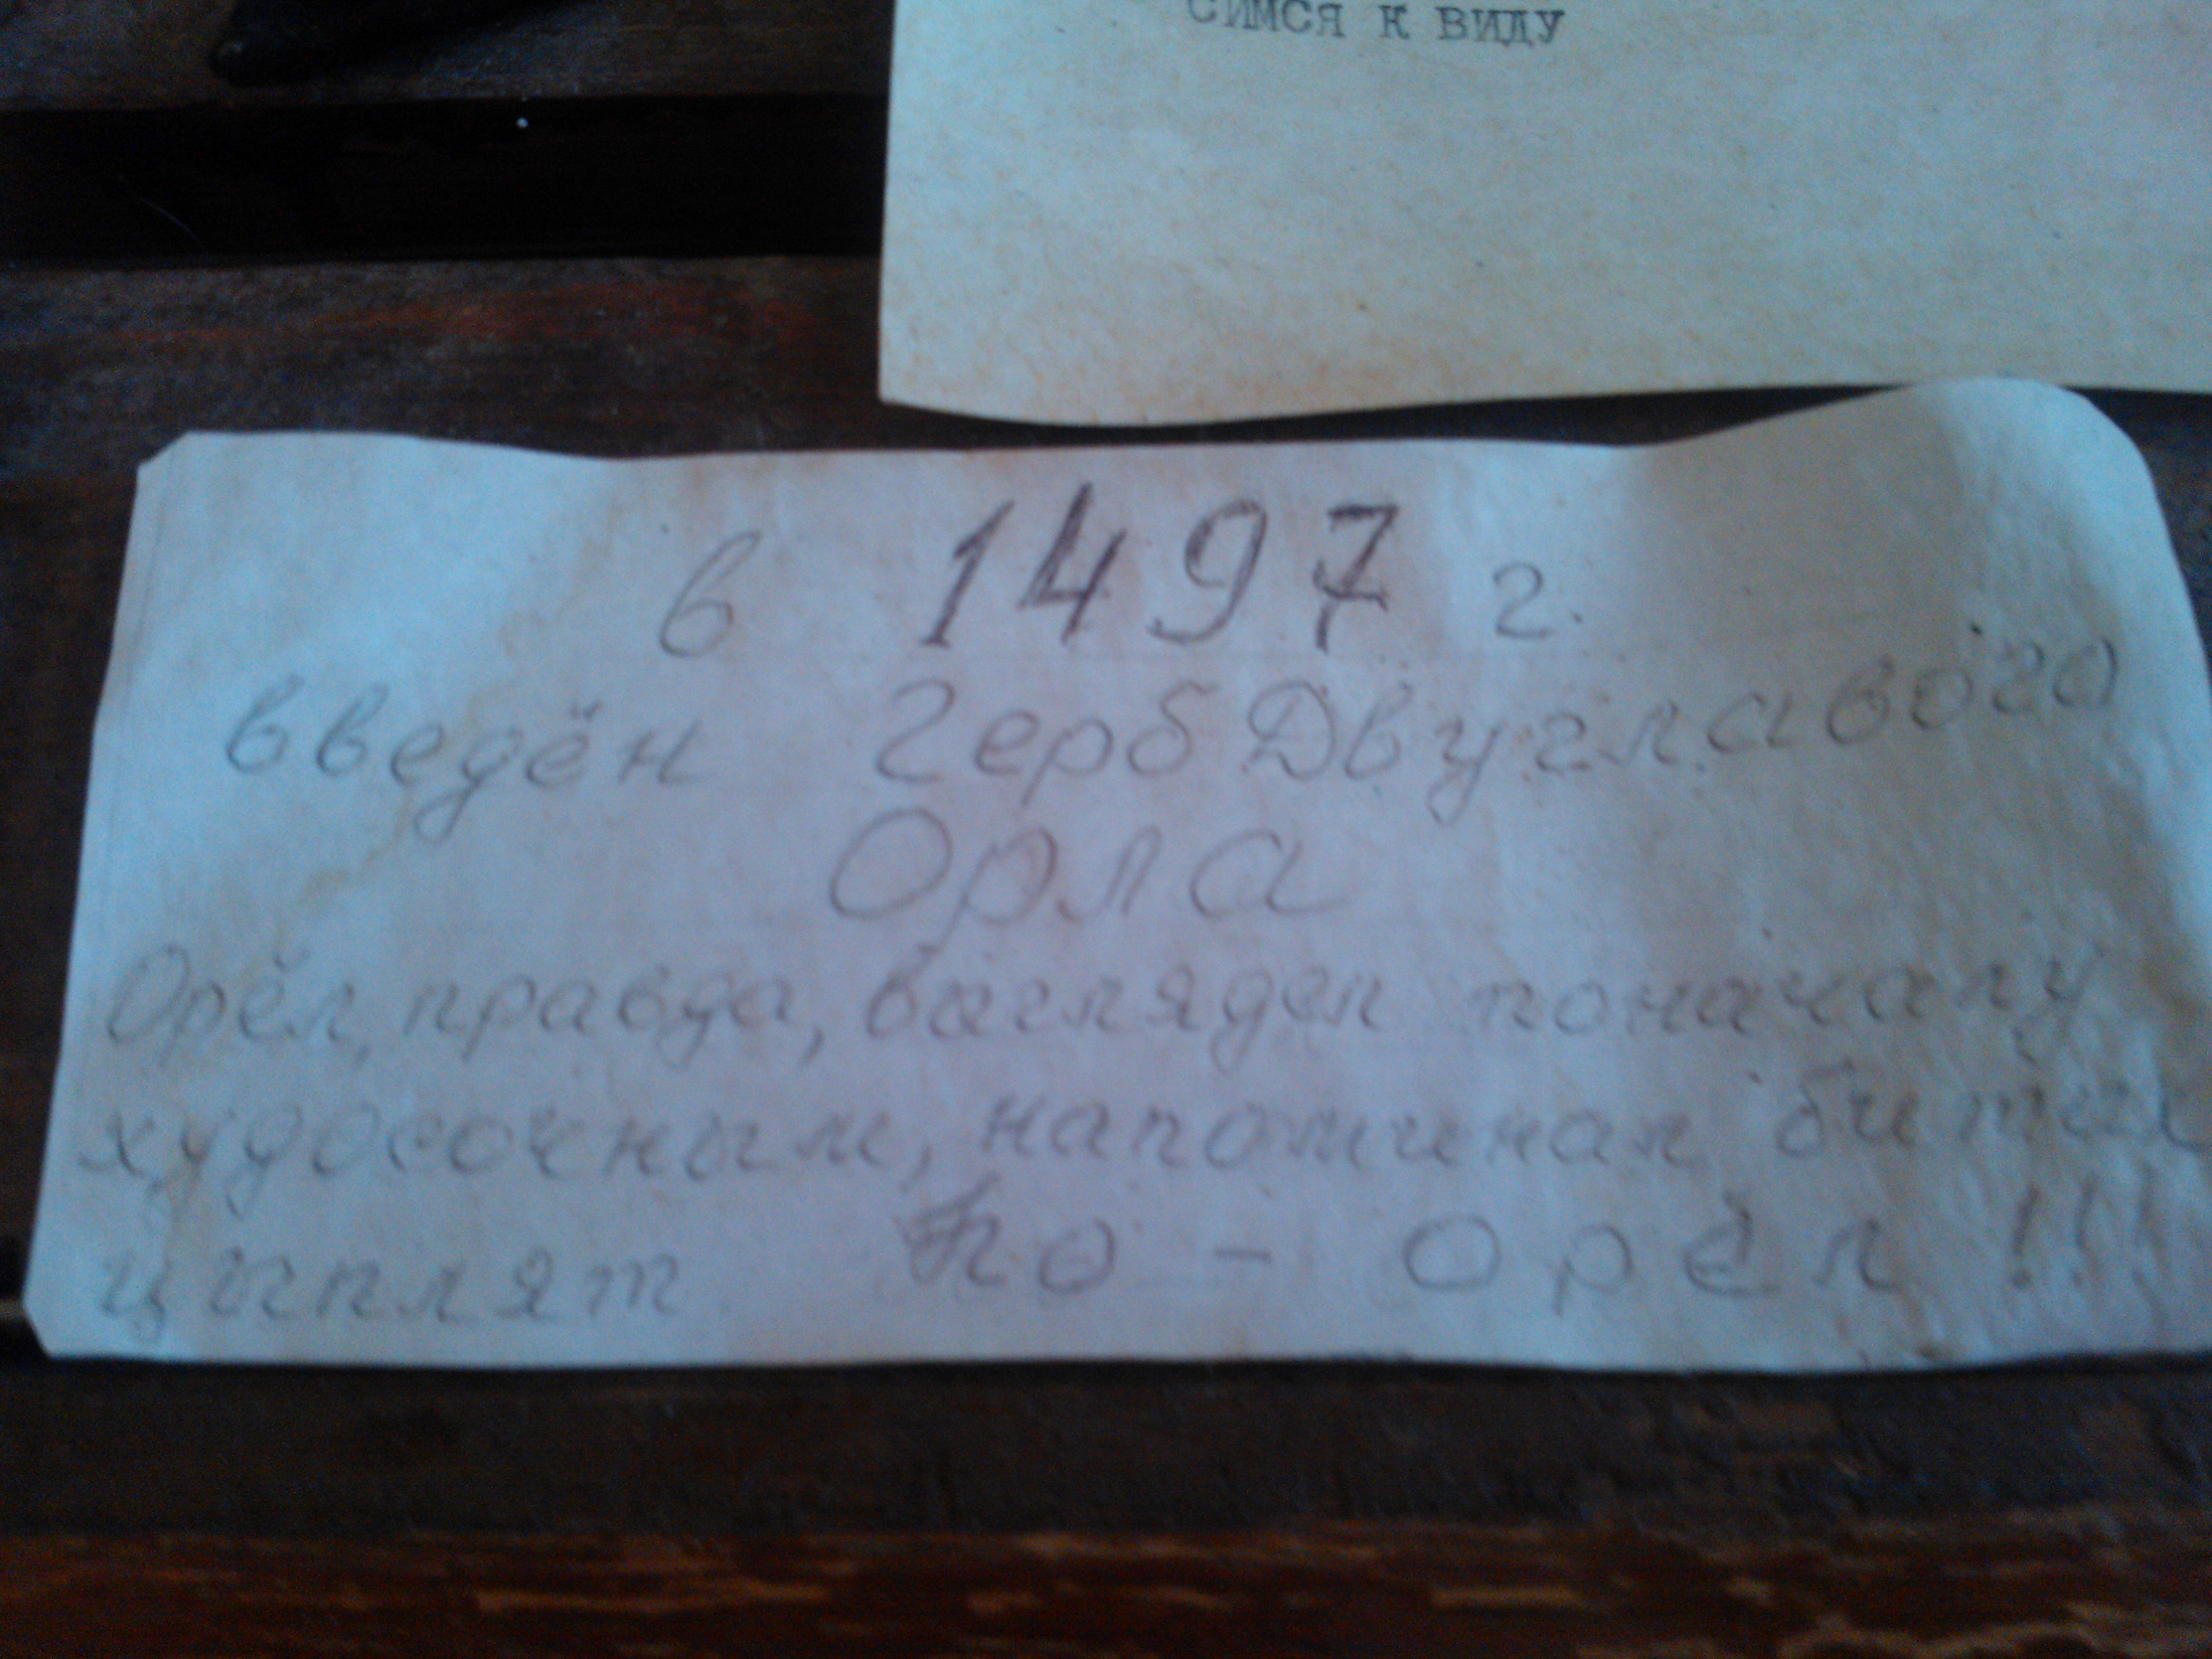 СИМСЯ К ВИДУ
в 1497 г.
введён Герб Двуглавого
Орла
Орёл, правда, выглядел поначалу
худосочным, напоминал битых
цыплят Но - орёл!!!